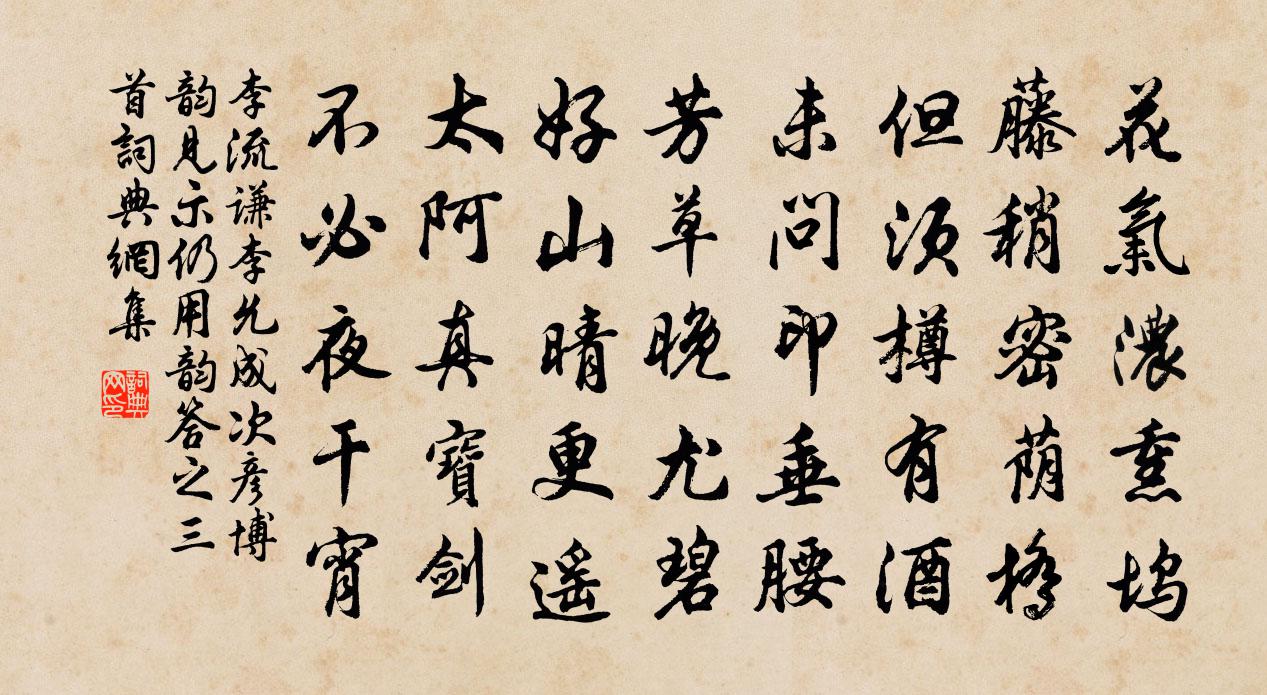 花氣濃熏塢
藤稍密荫橋
但須樽有酒
未問印垂腰
芳草晚尤碧
好山晴更遥
太阿真寶劍
不必夜干宵
李流谦李允成次彦博
韵見示仍用韵答之三
首詞典網集
詞典网印